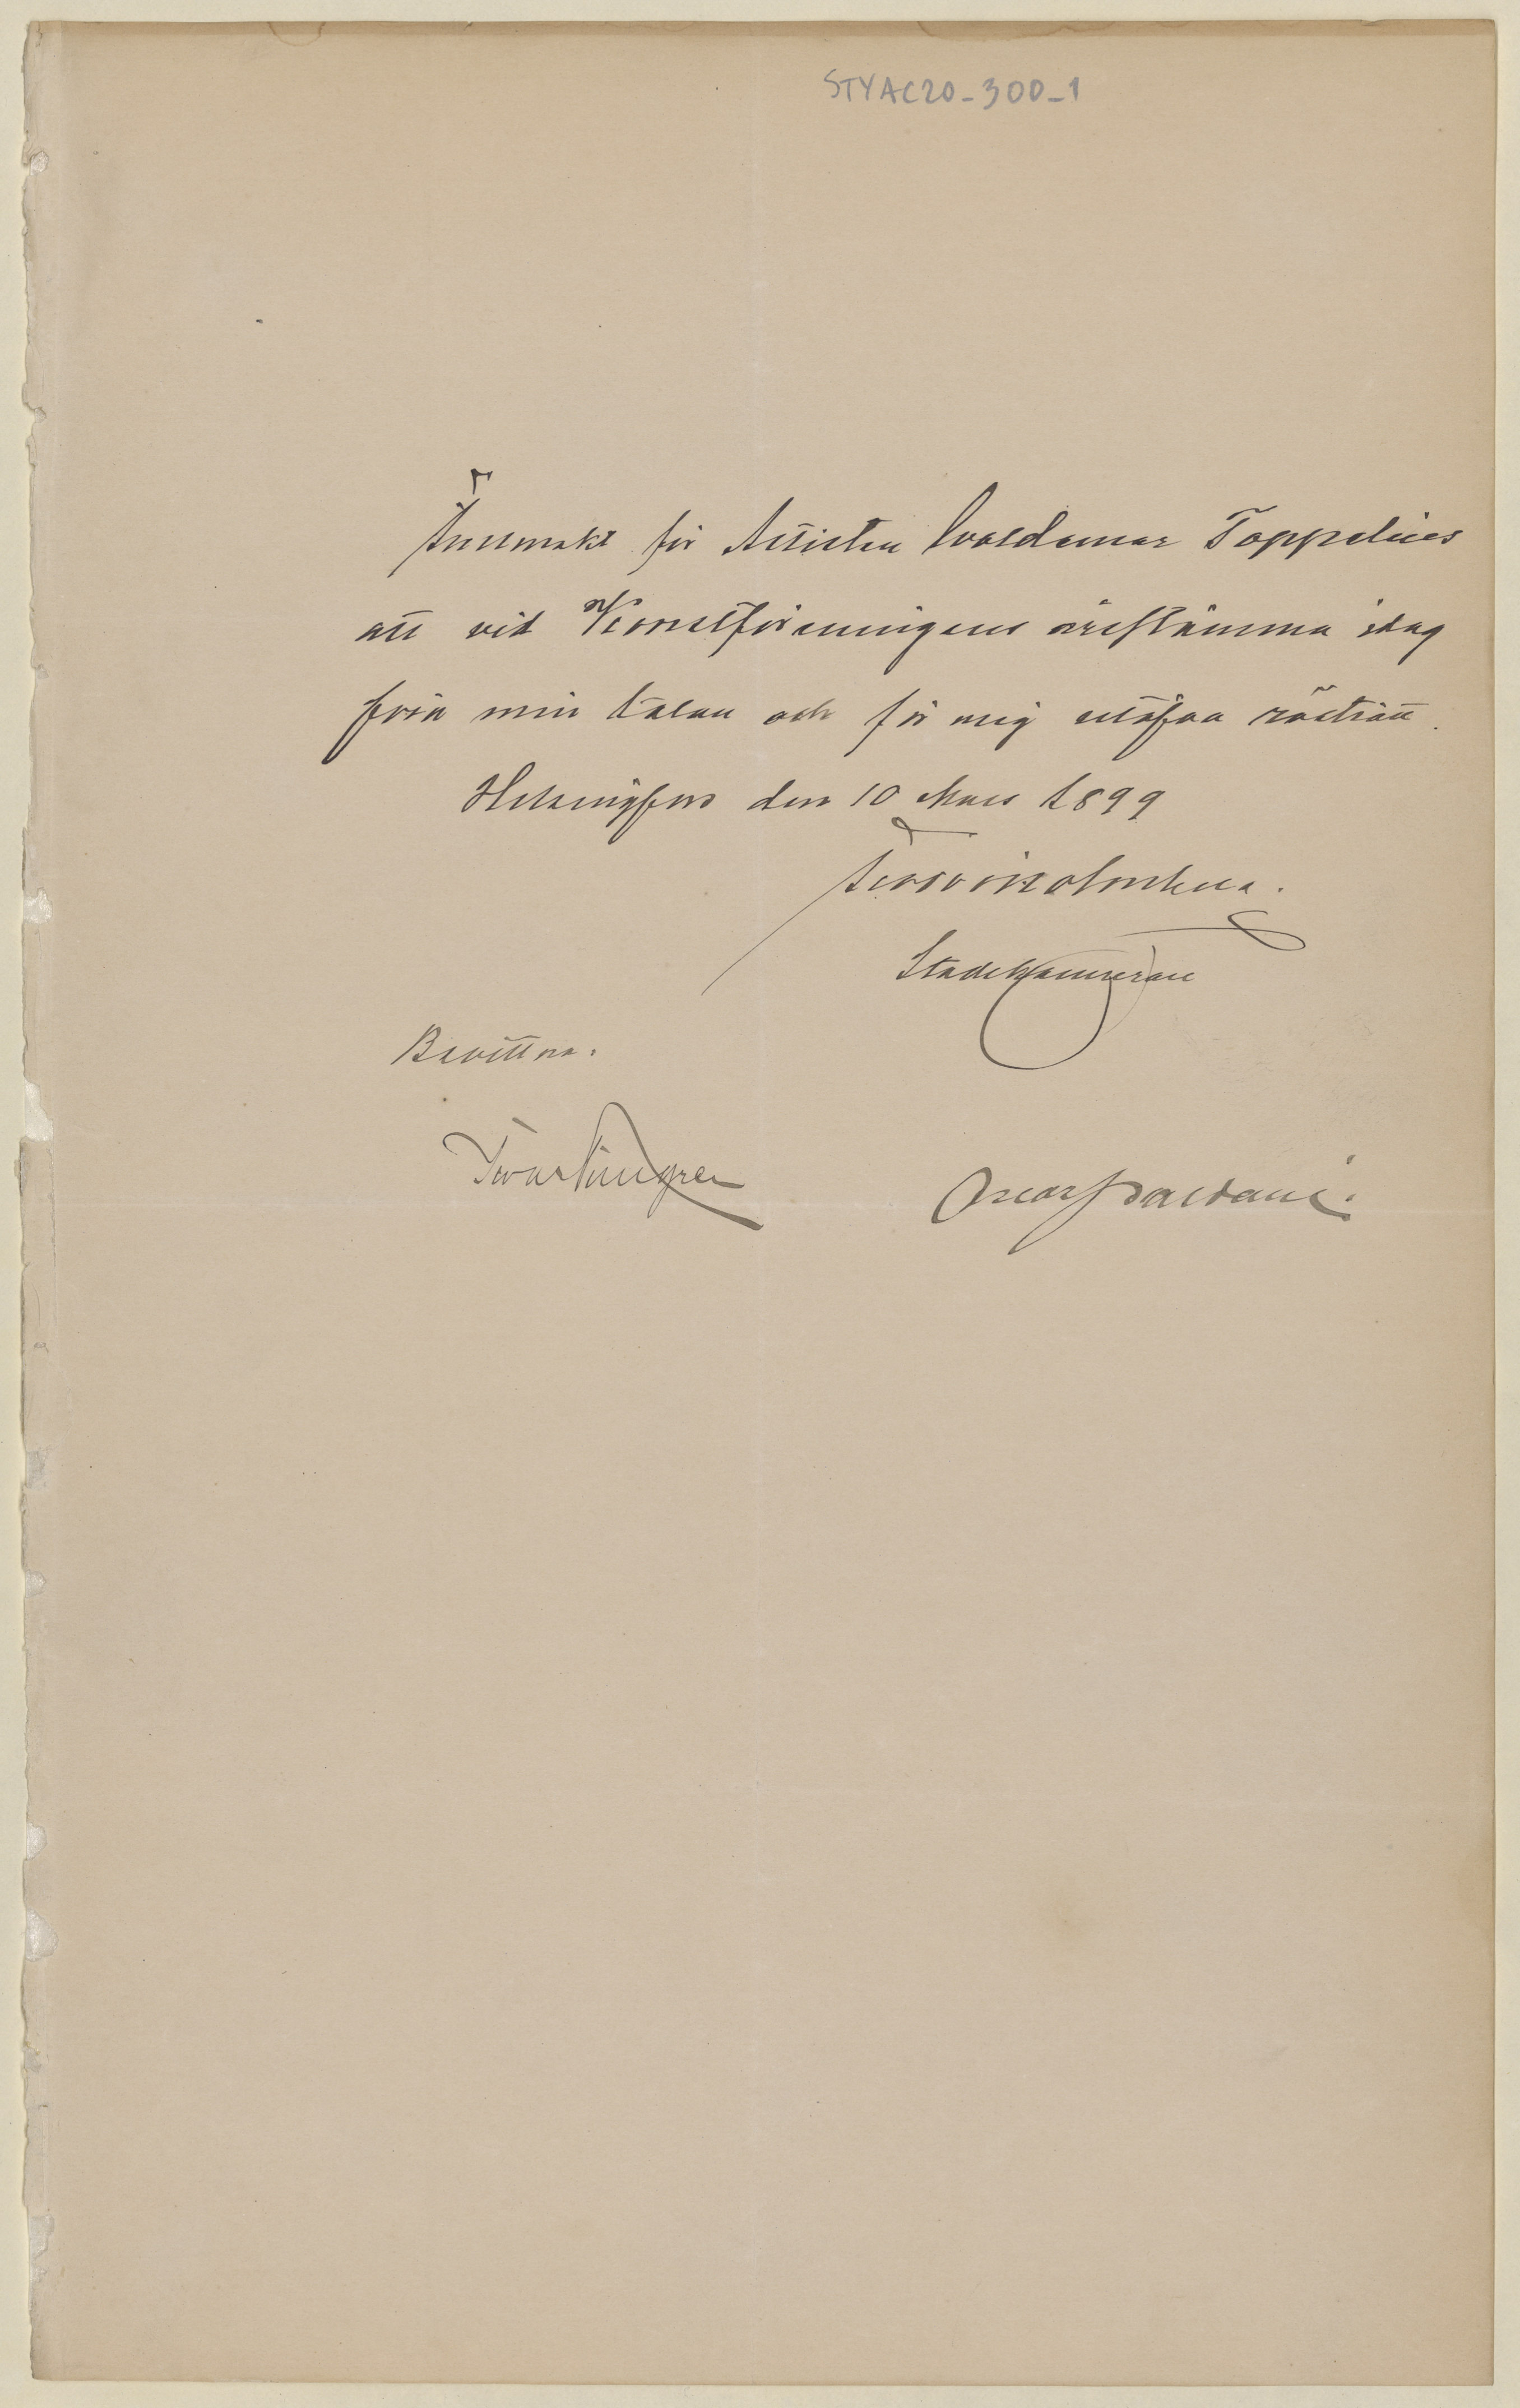 STYAC20-300-1
Fullmakt för Artisten Woldemar Toppelius
att vid Konstföreningens årsstämma idag
föra min talan och för mig utöfva rösträtt.
Helsingfors den 10 Mars 1899
Stadskamrerare
Bevittna:
Ivar Lindgren
Oscar